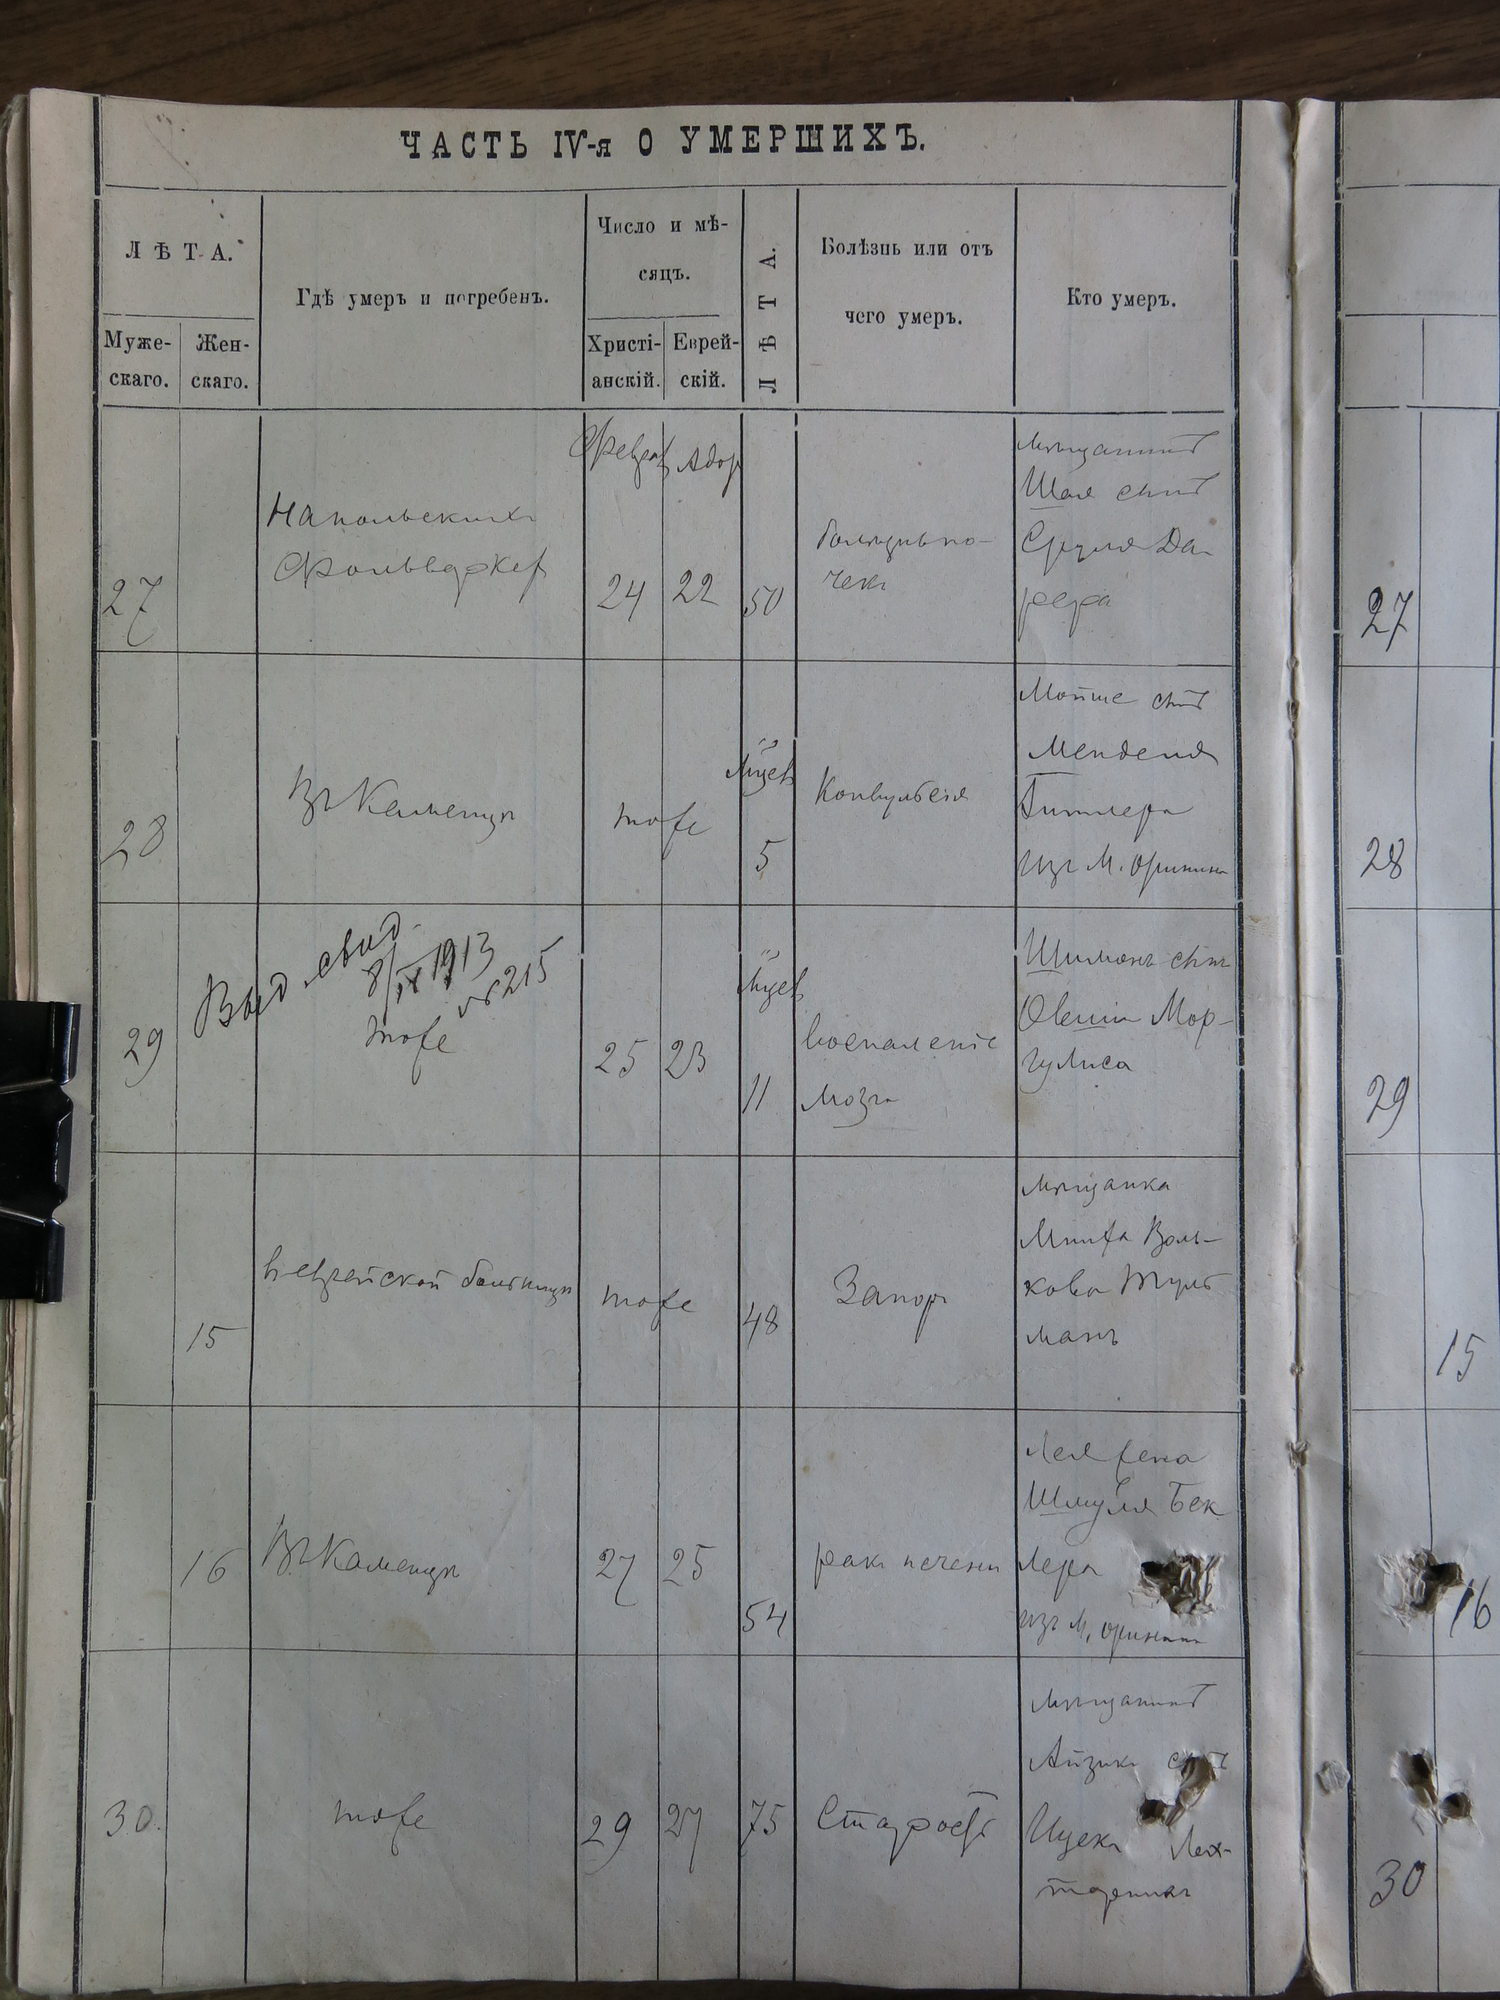 ЧАСТЬ IV-я О УМЕРШИХЪ.
ЛѢТА.
Муже-
скаго.
Жен-
скаго.
Гдѣ умеръ и погребенъ.
Число и мѣ-
сяцъ.
Христі-
анскій.
Еврей-
скій.
ЛѢТА.
Болѣзнь или отъ
чего умеръ.
Кто умеръ.
27
На польскихъ
фольваркахъ
Февраль
24
Адоръ
22
50
болѣзнь по-
чекъ
мѣщанинъ
Шая сынъ
Сруля
27
28
Въ Каменцѣ
тоже
Мѣсяцевъ
5
Конвульсія
Мошке сынъ
Менделя
изъ М. Оринина
28
Выд. свид.
8/IX 1913
№ 215
29
тоже
25
23
Мѣсяцевъ
11
воспаленіе
мозга
Шимонъ сынъ
Овшии Мор-
гулиса
29
15
в еврейской больницѣ
тоже
48
Запоръ
мѣщанка
Волъ-
кова Тульт
манъ
15
16
Въ Каменцѣ
27
25
54
ракъ печени
Лея жена
Шмуля Бек
лера
изъ М. Оринина
16
30.
тоже
29
27
75
Старость
мѣщанинъ
Айзикъ сынъ
Ицека Лех-
30